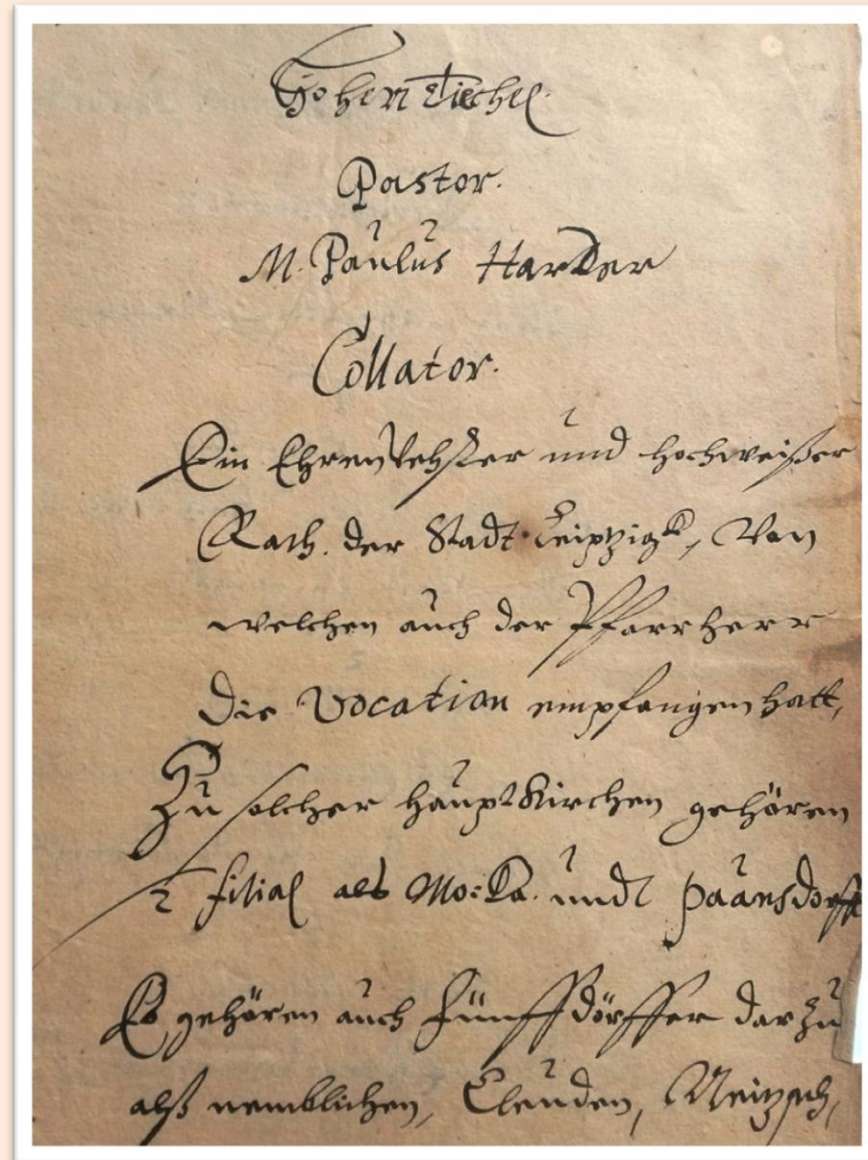 Hohen Tiechel.
Pastor.
M. Paulus Harder
Collator.
Ein Ehren Vehster und hochweißer
Rath. der Stadt Leiptzigk, Von
welchen auch der Pfarrherr
die Vocation empfangen hatt,
Zu solcher haupt Kirchen gehören
2 filial als Mocka. undt paunsdorff
Es gehören auch fünff dörffer darzu
alß nemblichen, Cleuden, Neitzsch,